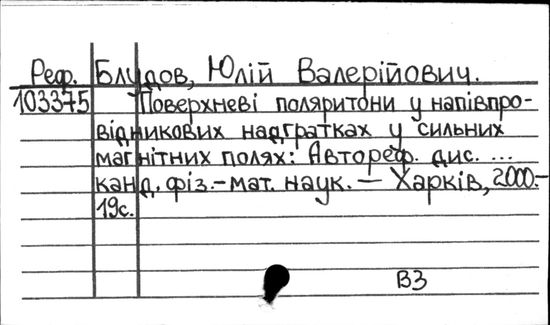 Реф. Блудов, Юлій Валерійович.
103375 Поверхневі поляритони у напівпро-
відникових надгратках у сильних
магнітних полях: Автореф. дис. ...
канд. фіз.-мат. наук. — Харків, 2000.-
19с.
ВЗ